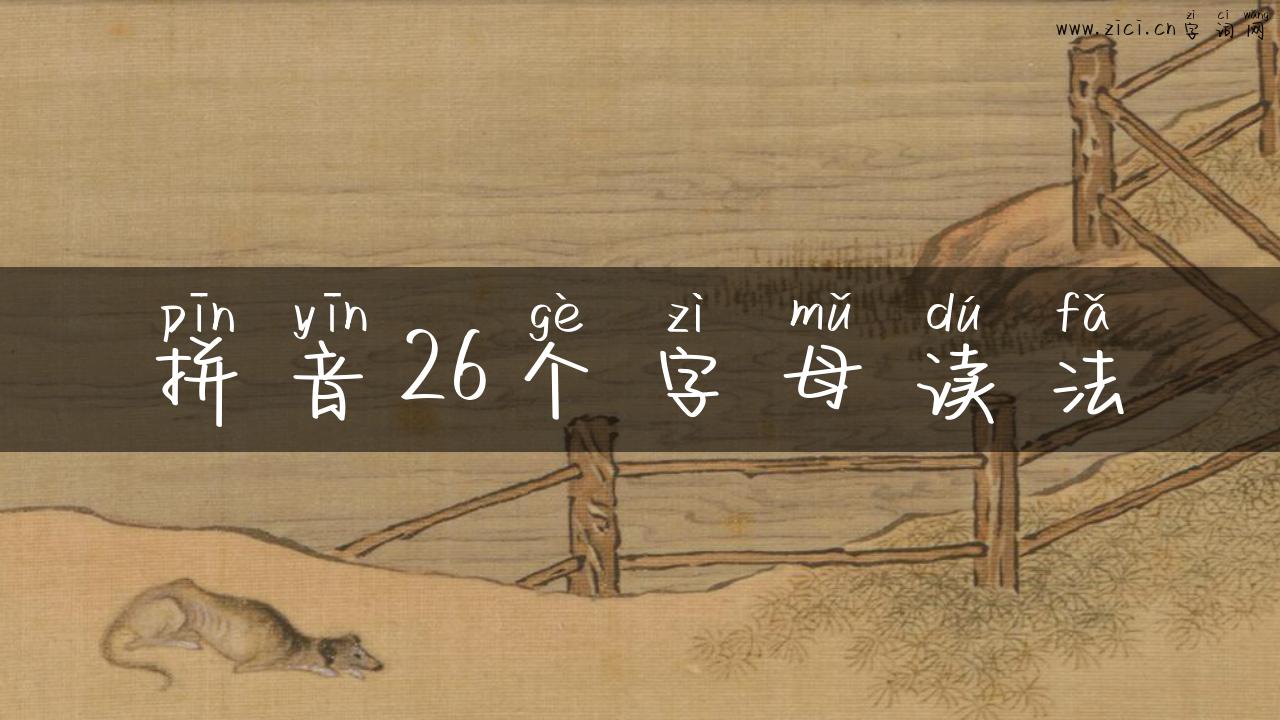 zì cí wǎng
www.zici.cn 字词网
pīn yīn gè zì mǔ dú fǎ
拼音26个字母读法